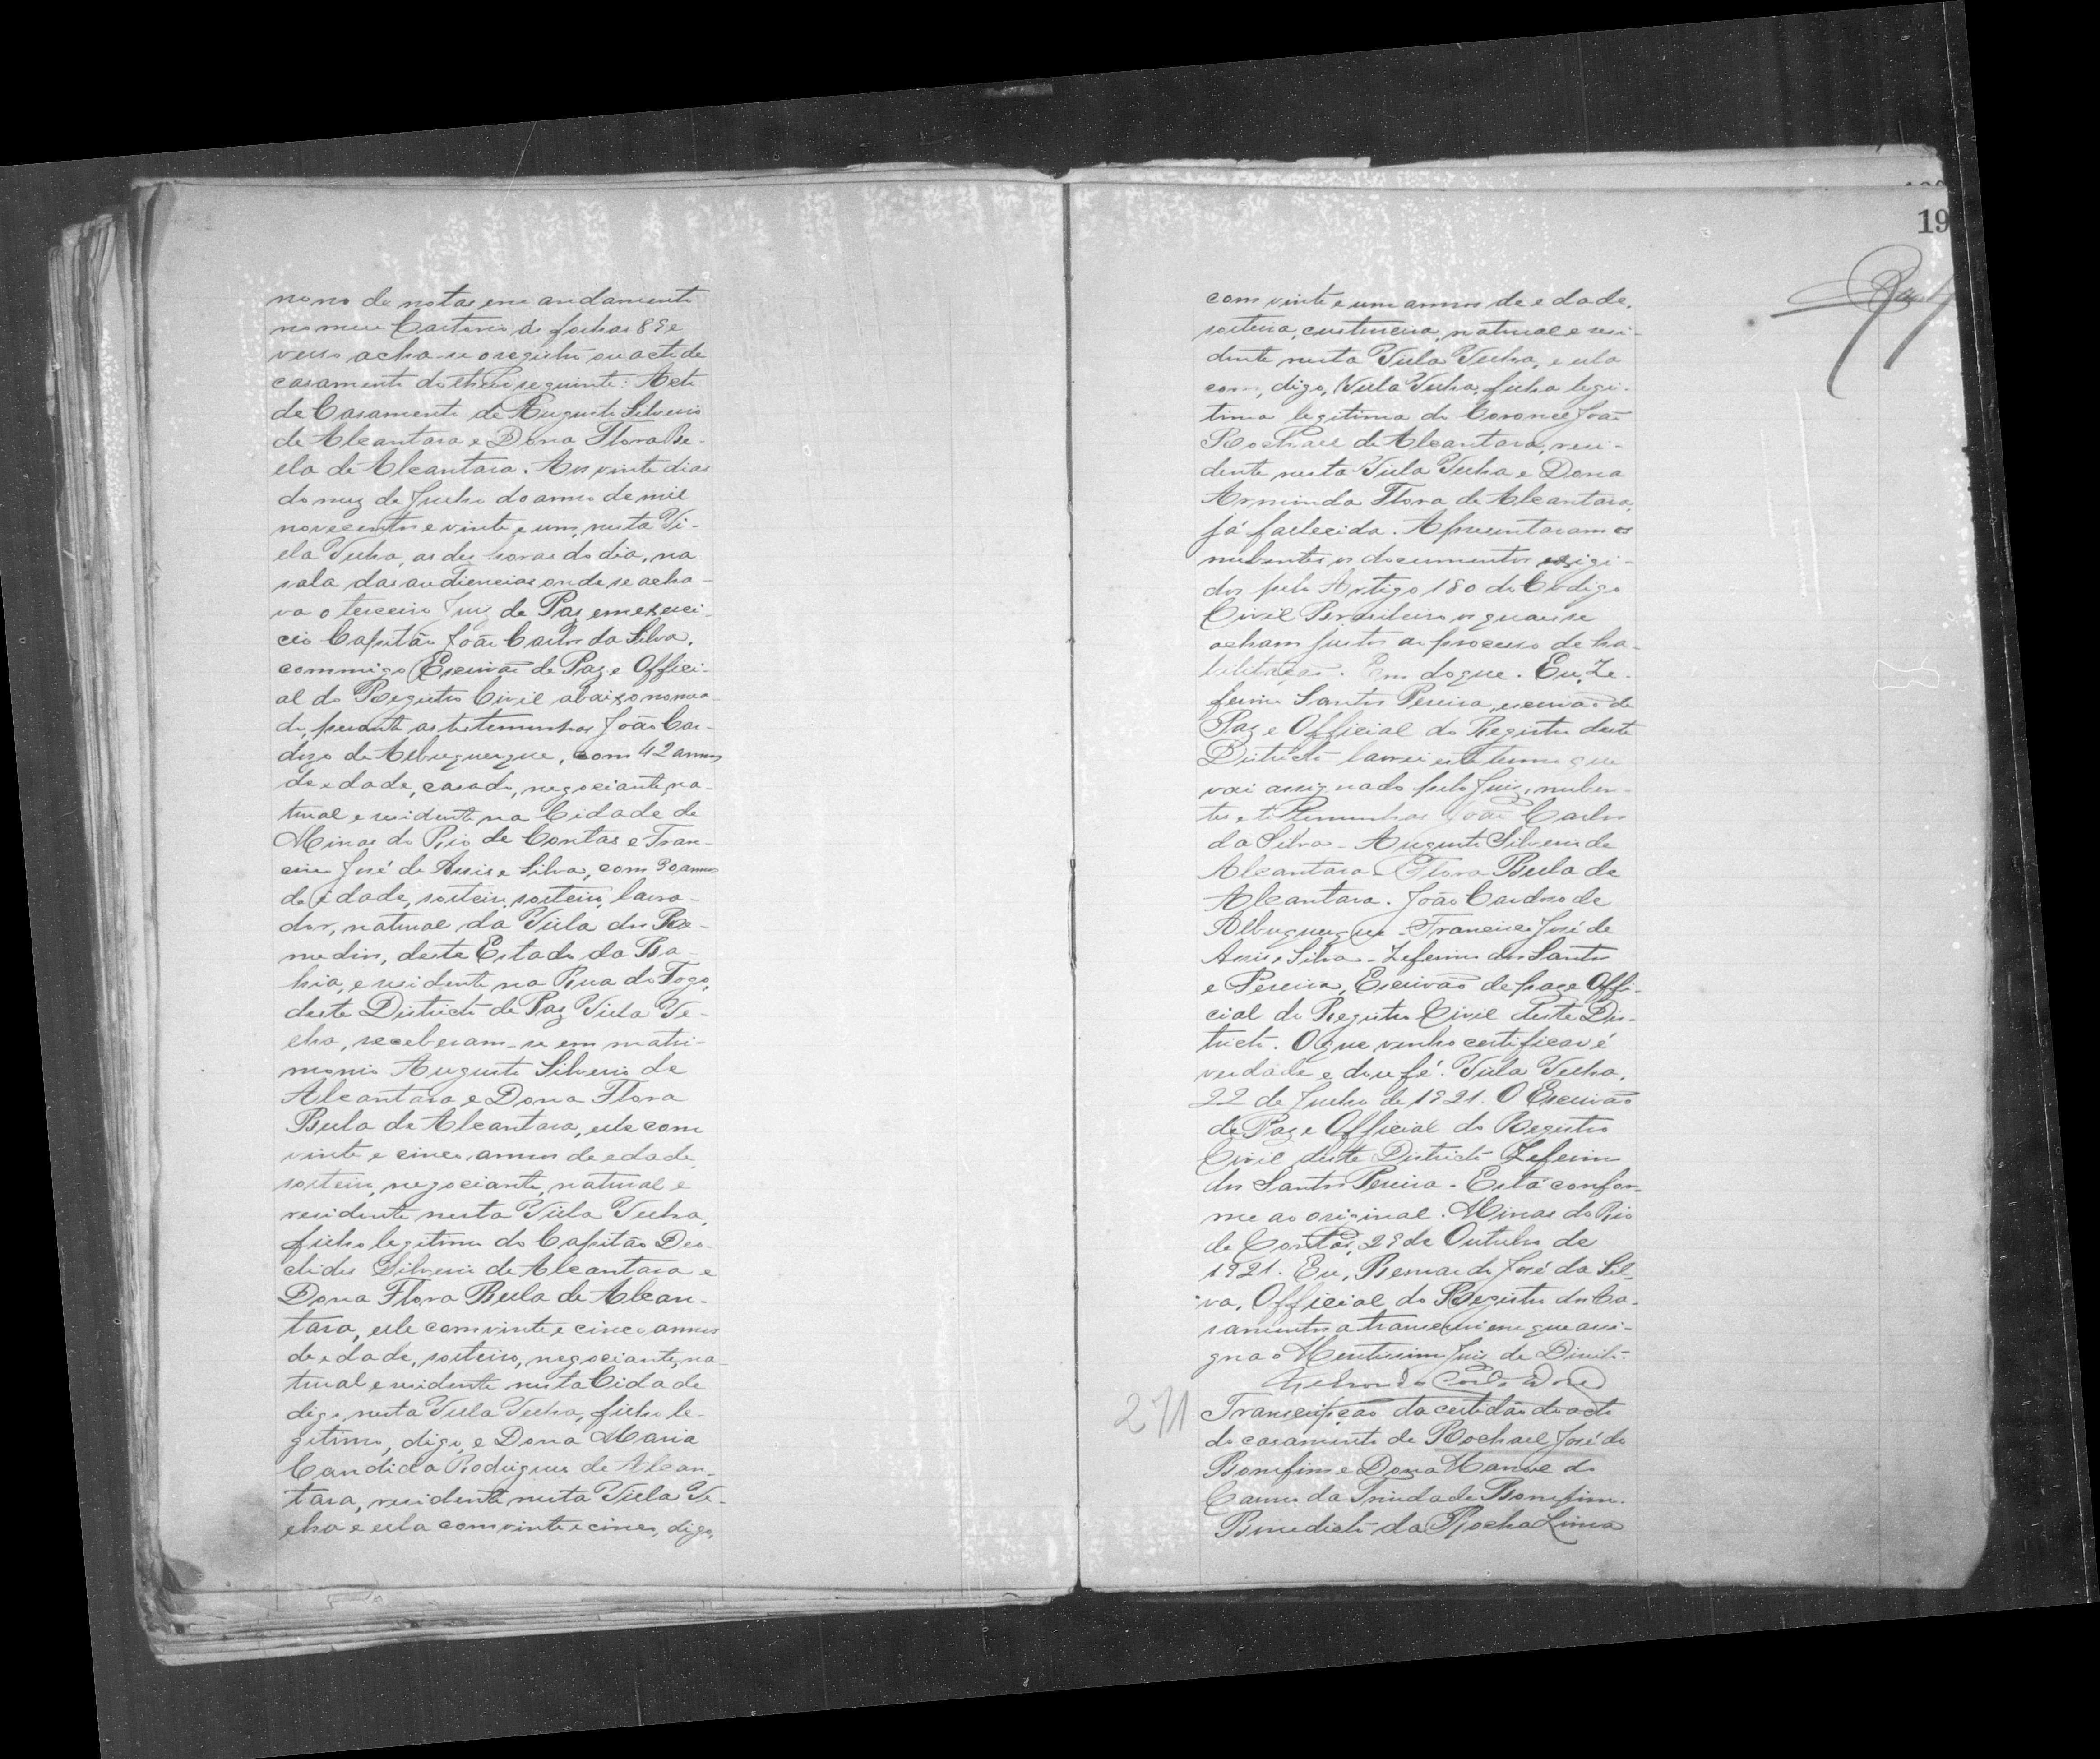 nono de notas em andamento
no meu Cartorio ás folhas 89 e
verso acha-se o registro ou acto de
casamento do theor seguinte: Acto
de Casamento de Augusto Silverio
de Alcantara e Dona Flora Be-
la de Alcantara. Aos vinte dias
do mez de Julho do anno de mil
novecentos e vinte e um, nesta Vi-
lla Velha, as dez horas do dia, na
sala das audiencias onde se acha-
va o terceiro Juiz de Paz em exerci-
cio Capitão João Carlos da Silva,
commigo Escrivão de Paz e Offici-
al do Registro Civil abaixo nomea-
do, perante as testemunhas João Car-
dozo de Albuquerque, com 42 annos
de edade, casado, negociante, na-
tural e residente na Cidade de
Minas do Rio de Contas e Fran-
cisco José de Assis e Silva, com 30 annos
de edade, solteiro, solteiro, lavra-
dor, natural da Villa dos Re-
medios, deste Estado da Ba-
hia, e residente na Rua do Fogo,
deste Districto de Paz Villa Ve-
lha, receberam-se em matri-
monio Augusto Silverio de
Alcantara e Dona Flora
Bella de Alcantara, elle com
vinte e cinco annos de edade,
solteiro, negociante, natural e
residente nesta Villa Velha,
filho legitimo do Capitão Deo-
clides Silverio de Alcantara e
Dona Flora Bella de Alcan-
tara, elle com vinte e cinco annos
de edade, solteiro, negociante, na-
tural e residente nesta Cidade
digo nesta Villa Velha, filho le-
gitimo, digo, e Dona Maria
Candida Rodrigues de Alcan-
tara, residente nesta Villa Ve-
lha e ella com vinte e cinco, digo,
19
com vinte e um annos de edade,
solteira, costureira, natural e resi-
dente nesta Villa Velha, e ella
com, digo, Villa Velha, filha legi-
tima legitima do Coronel João
Rochael de Alcantara, resi-
dente nesta Villa Velha e Dona
Arminda Flora de Alcantara,
já fallecida. Apresentaram os
nubentes os documentos exigi-
dos pelo Artigo 180 do Codigo
Civil Brasileiro os quaes se
acham juntos ao processo de ha-
bilitação. Em do que. Eu, Ze-
ferino Santos Pereira, escrivão de
Paz e Official do Registro deste
Districto lavrei este termo que
vai assignado pelo Juiz, nuben-
tes e testemunhas João Carlos
da Silva - Augusto Silverio de
Alcantara - Flora Bella de
Alcantara. João Cardozo de
Albuquerque - Francisco José de
Assis e Silva - Zeferino dos Santos
e Pereira, Escrivão de paz e Offi-
cial do Registro Civil deste Dis-
tricto. O que venho certificar é
verdade e dou fé. Villa Velha,
22 de Julho de 1921. O Escrivão
de Paz e Official do Registro
Civil deste Districto Zeferino
dos Santos Pereira - Está confor-
me ao original. Minas do Rio
de Contas, 29 de Outubro de
1921. Eu, Bernardo José da Sil-
va, Official do Registro dos Ca-
samentos a transcrevi em que assi-
gna o Meritissimo Juiz de Direito.
271
Transcripção da certidão do acto
do casamento de Rochael José do
Bomfim e Dona Manoel do
Carmo da Trindade Bomfim.
Benedicto da Rocha Lima